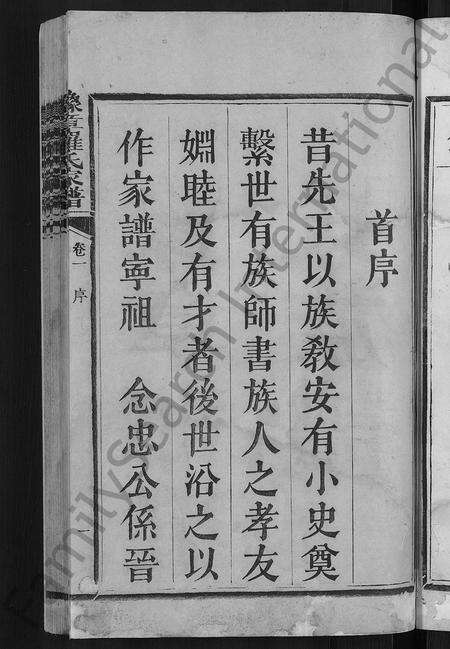 首序
昔先王以族教安有小史奠
繫世有族師書族人之孝友
婣睦及有才者後世沿之以
作家譜寧祖 念忠公係晉
豫章羅氏家譜 卷一 序 一
FamilySearch International